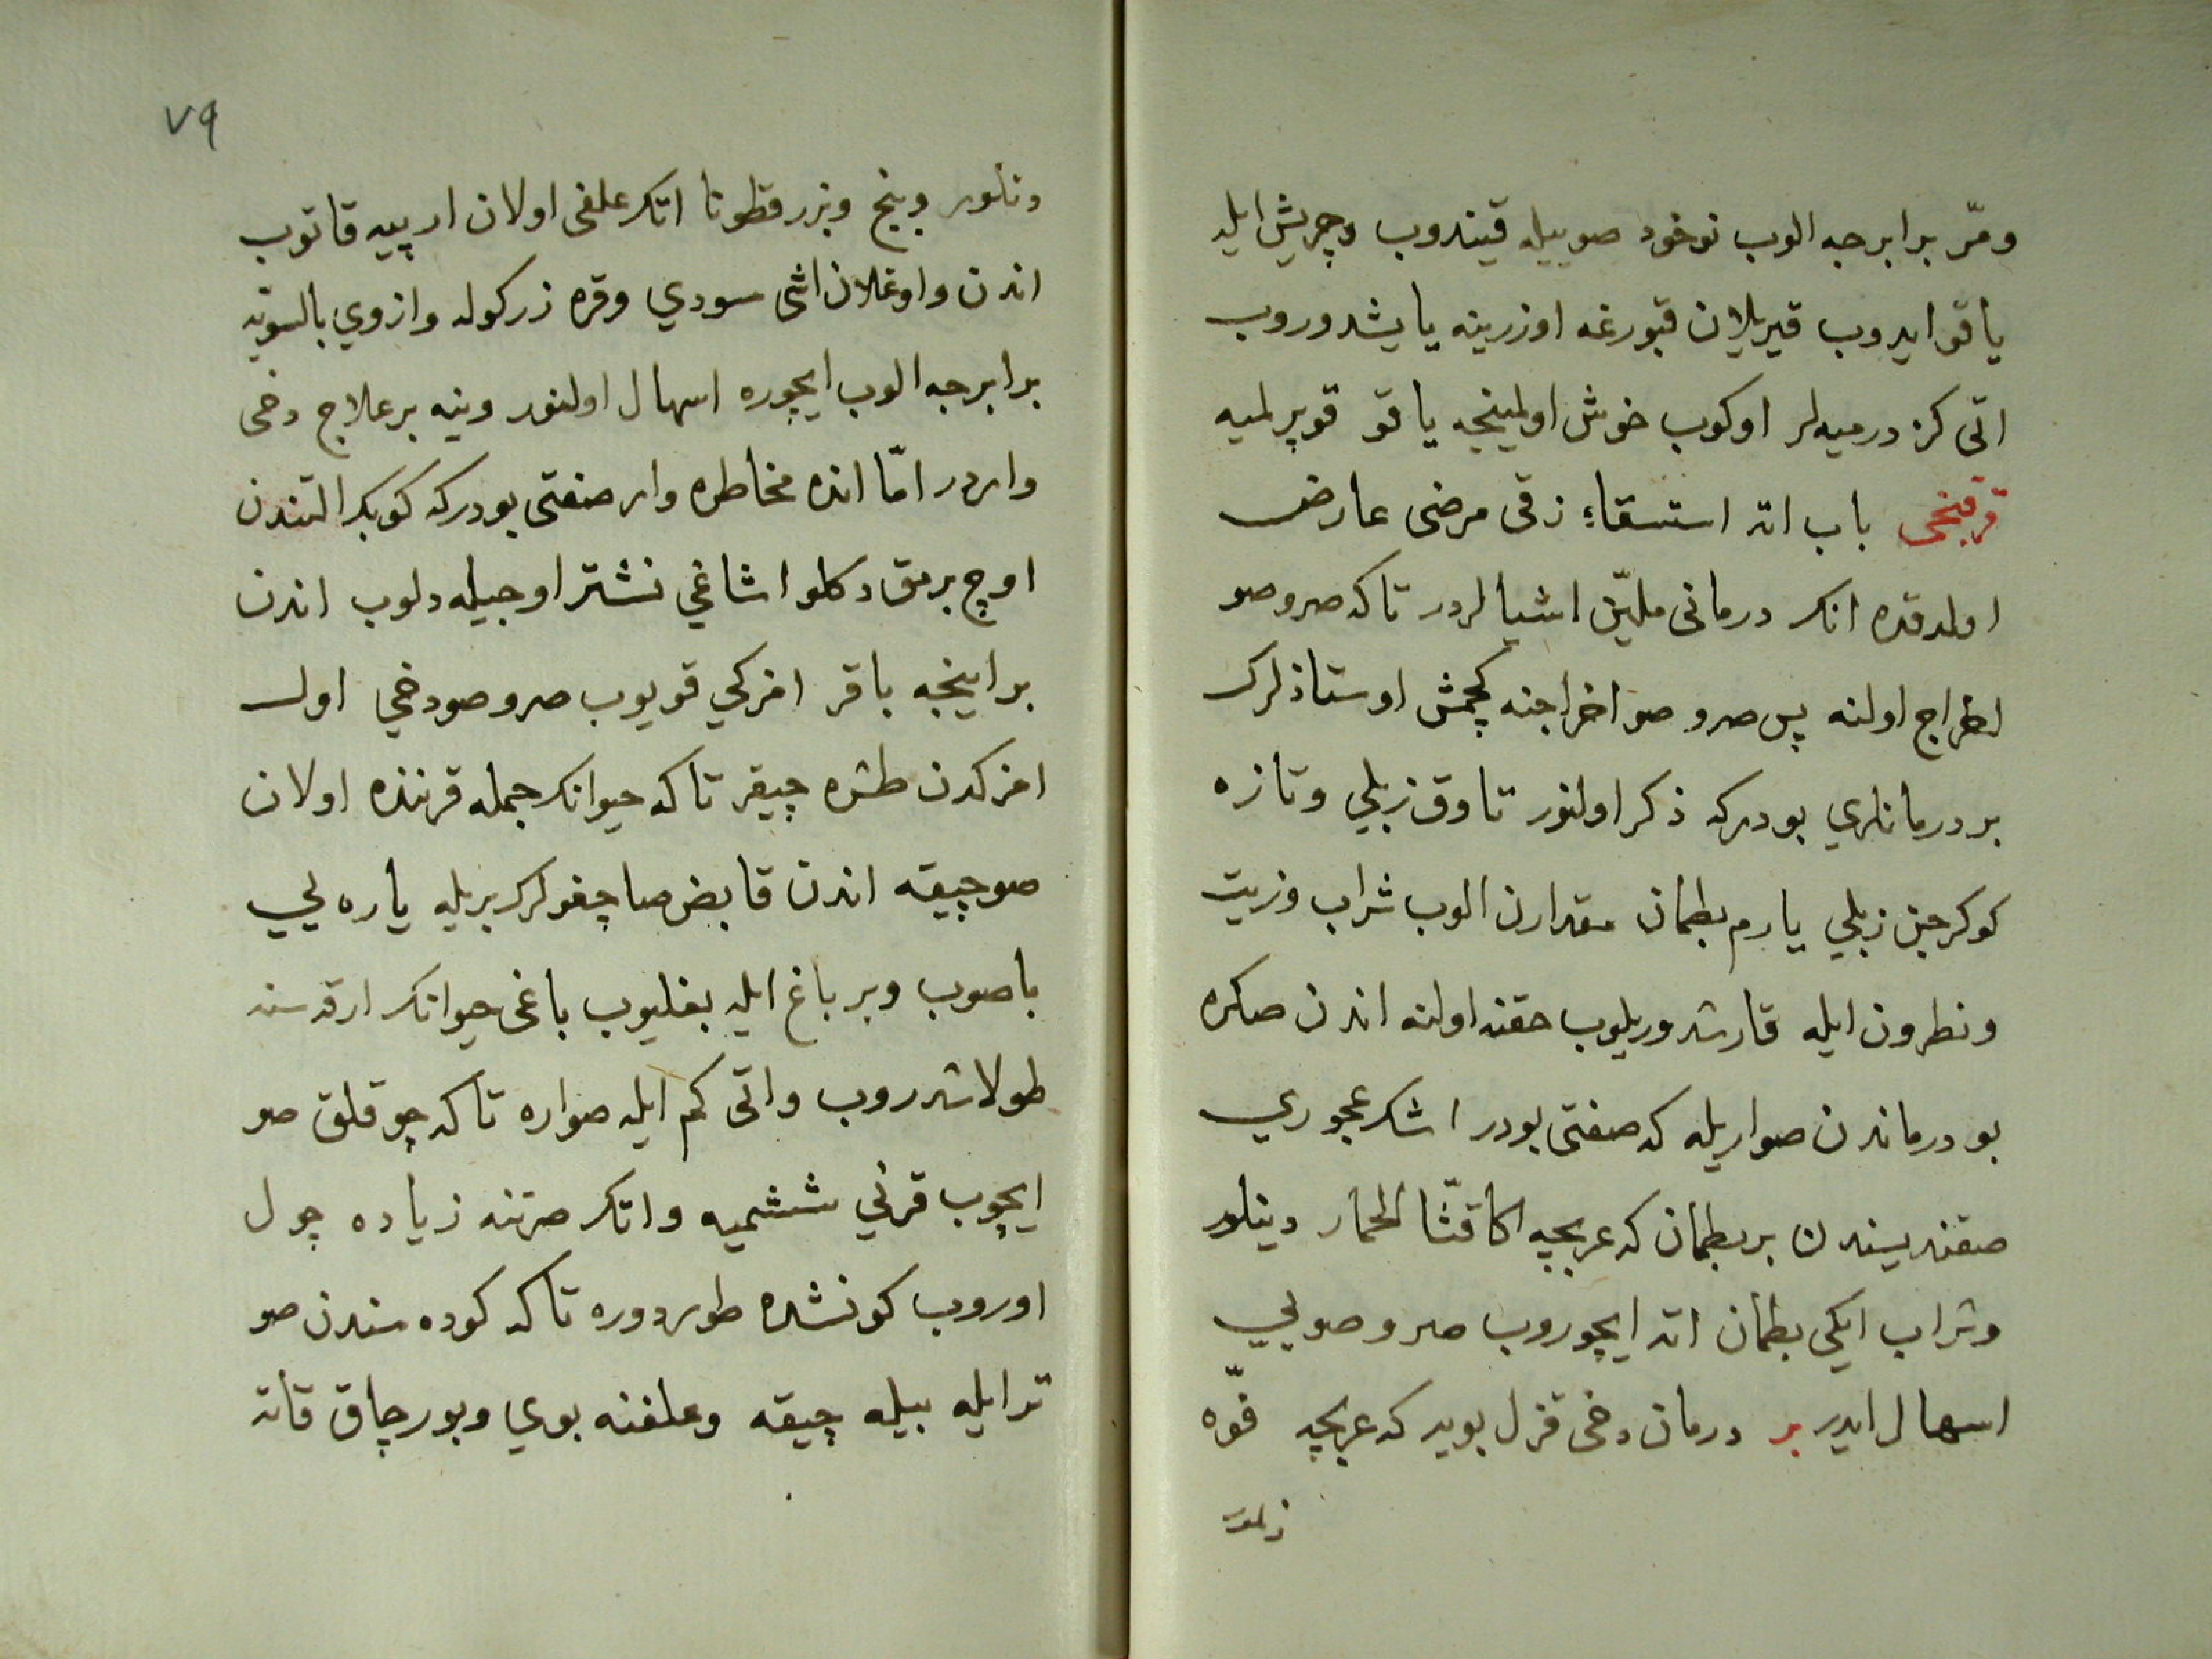 ومّر برابرجه الوب نوخود صوييله قيندوب وچريش ايله
ياقو ايدوب قيريلان قبورغه اوزرينه ياپشدوروب
اتى كزدرميه‌لر اوكوب خوش اولمينجه ياقو قوپرلميه
قرقنجى باب اته استسقاء زقى مرضى عارض
اولدقده انك درمانى مليّن اشيالردر تاكه صروصو
اخراج اولنه پس صرو صو اخراجنه كچمش اوستاذلرك
بر درمانلري بودركه ذكر اولنور تاوق زبلي وتازه
كوكرجين زبلي يارم بطمان مقدارن الوب شراب وزيت
ونطرون ايله قارشدوريلوب حقنه اولنه اندن صكره
بو درماندن صواريله كه صفتى بودر اشك عجوري
صقنديسندن بر بطمان كه عربجه اكا قثّا الحمار دينلور
وشراب ايكى بطمان اته ايچوروب صرو صويي
اسهال ايدر بر درمان دخى قزل بويه كه عربجه فوّه
٧٩
دنلور وبنج وبزرقطونا اتك علفى اولان ارپيه قاتوب
اندن واوغلان اشى سودي وقره زركوله وازوي بالسويه
برابرجه الوب ايچوره اسهال اولنور وينه بر علاج دخى
واردر امّا انده مخاطره وار صفتى بودركه كوبك التندن
اوچ برمق دكلو اشاغي نشتر اوجيله دلوب اندن
بر اينجه باقر امزكي قويوب صرو صو دخي اول
امزكدن طشره چيقر تاكه حيوانك جمله قرننده اولان
صو چيقه اندن قابض صاچغولرك بريله ياره يي
باصوب وبر باغ ايله بغليوب باغى حيوانك ارقه سنه
طولاشدروب واتى كم ايله صواره تاكه چوقلق صو
ايچوب قرني ششميه واتك صرتنه زياده چول
اوروب كونشده طوردوره تاكه كوده سندن صو
تر ايله بيله چيقه وعلفنه بوي وبورچاق قاته